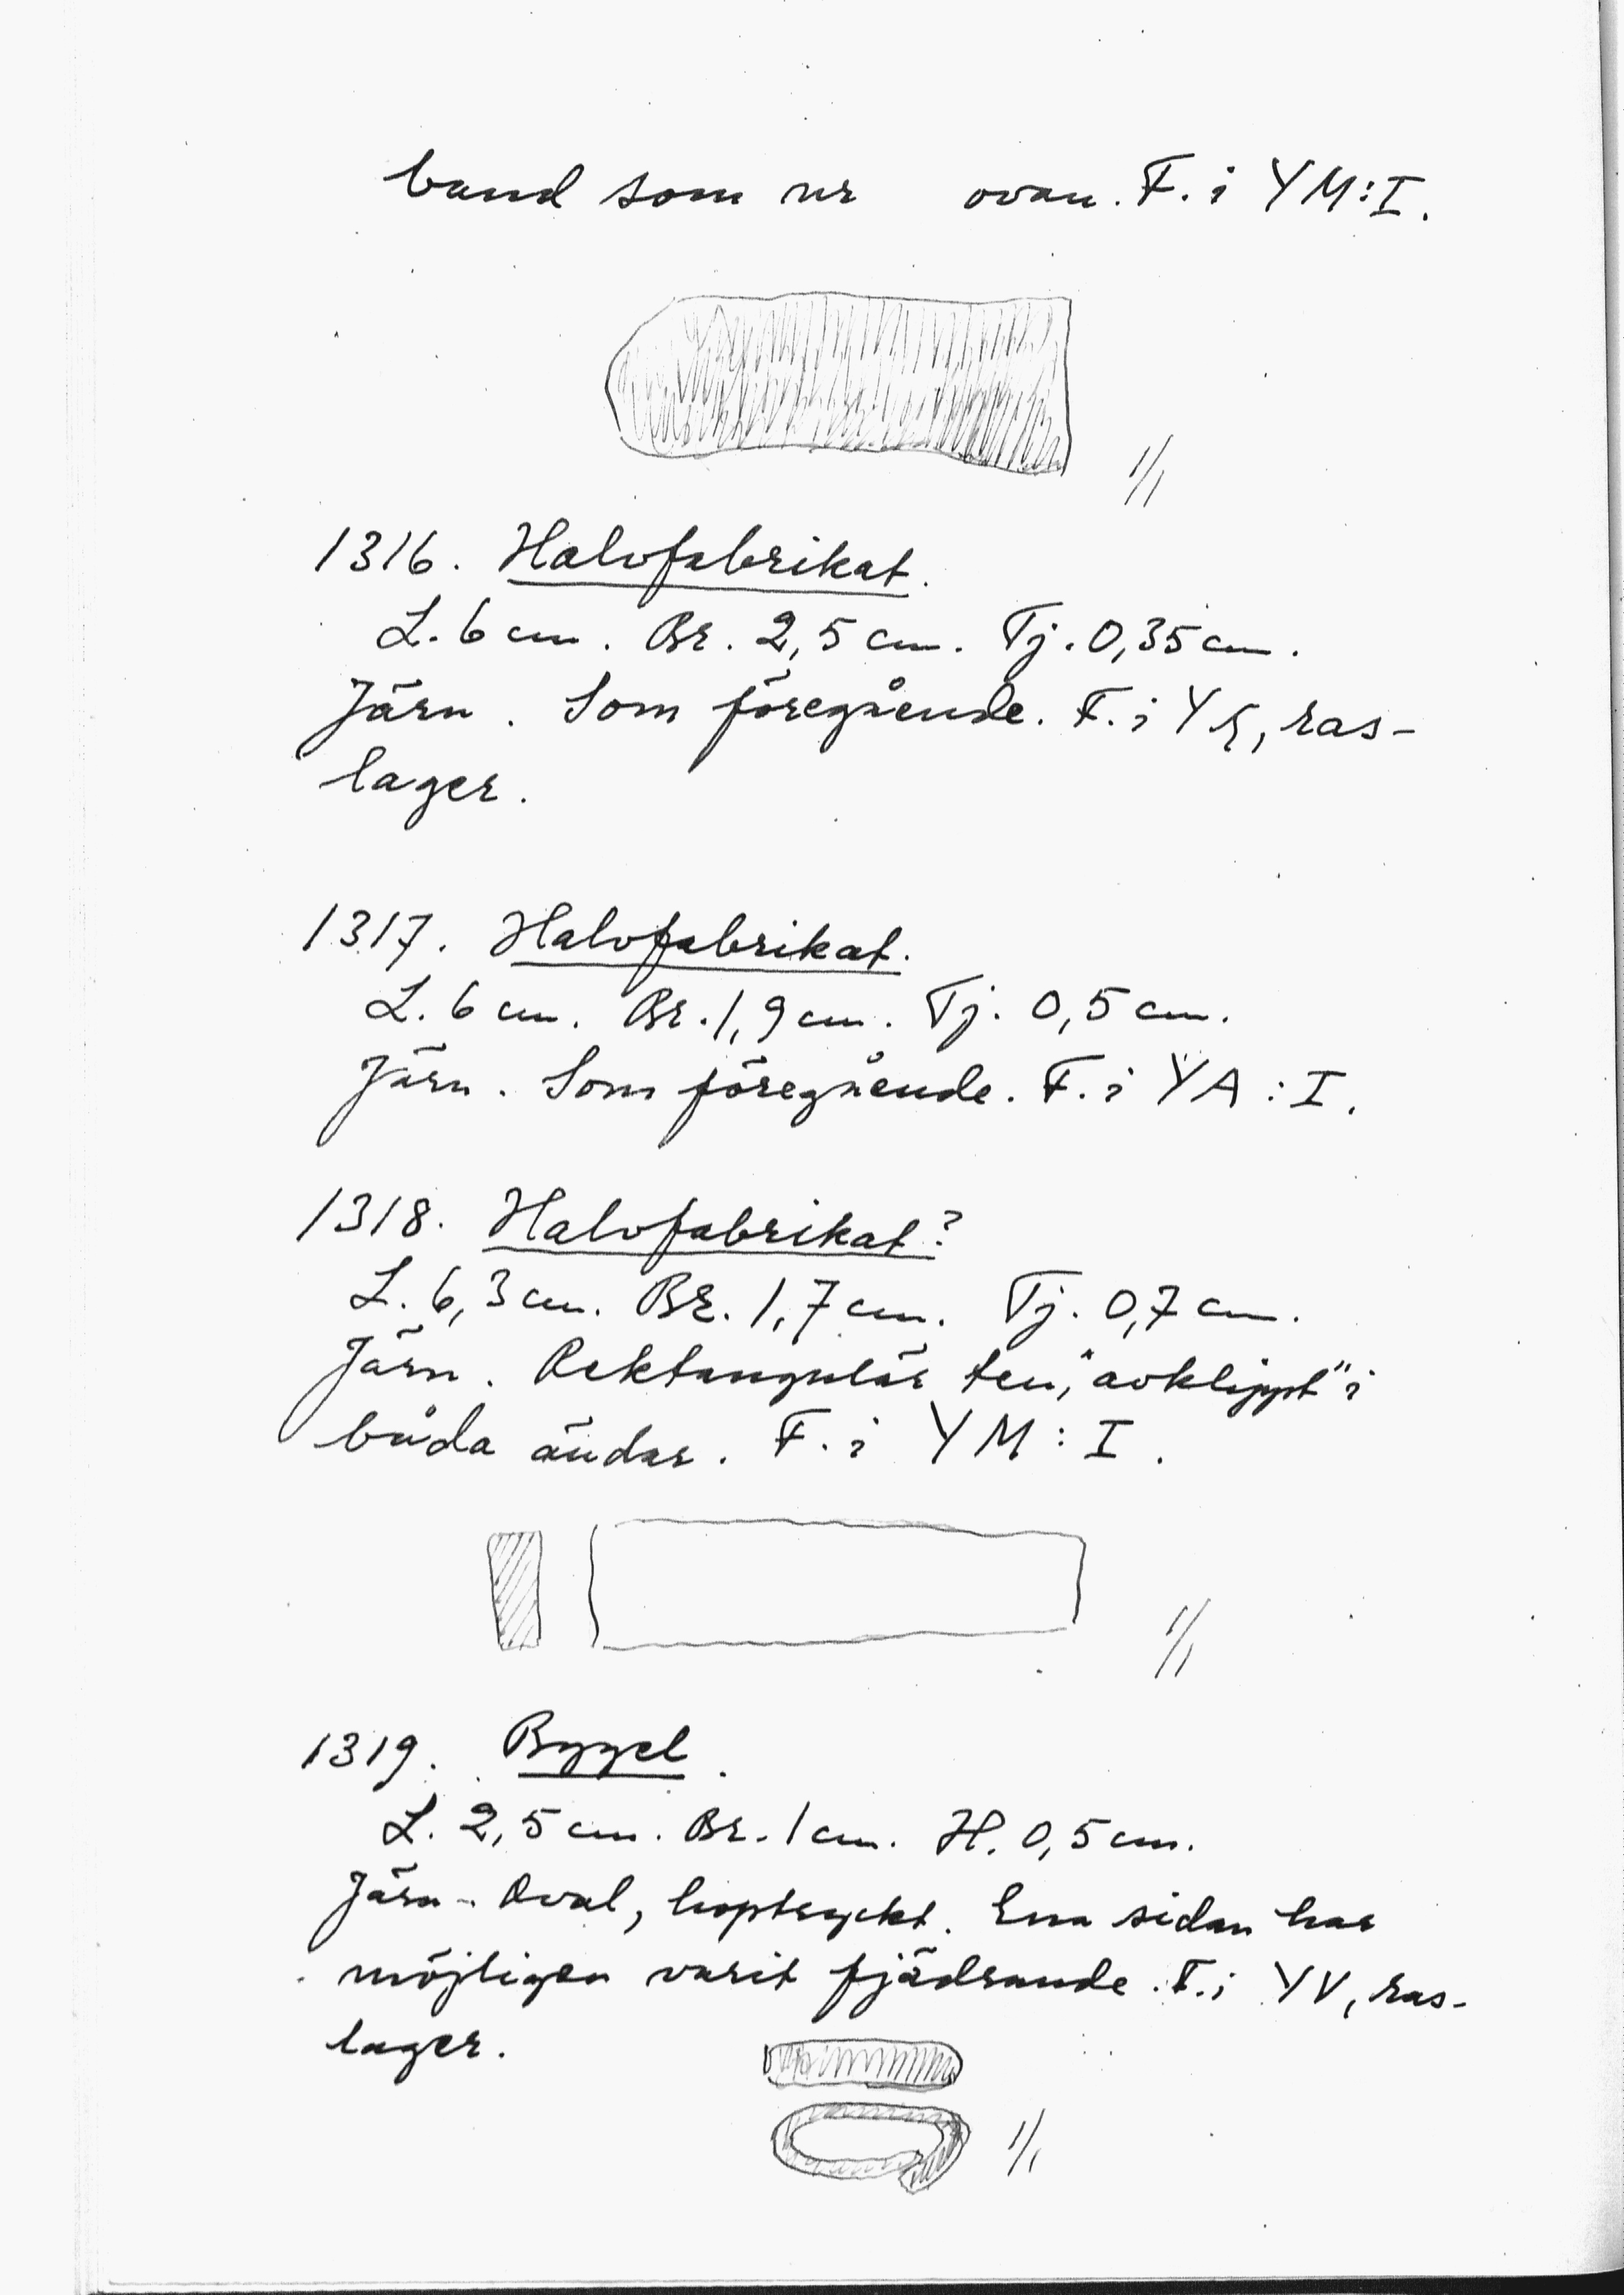 band som nr ovan. F. i YM:I.
1/1
1316. Halvfabrikat.
L. 6 cm. Br. 2,5 cm. Tj. 0,35 cm.
Järn. Som föregående. F. i Y, ras-
lager.
1317. Halvfabrikat.
L. 6 cm. Br. 1,9 cm. Tj. 0,5 cm.
Järn. Som föregående. F. i YA:I.
1318. Halvfabrikat?
L. 6,3 cm. Br. 1,7 cm. Tj. 0,7 cm.
Järn. Rektangulär ten, "avklippt" i
båda ändar. F. i YM:I.
1/1
1319. Bygel.
L. 2,5 cm. Br. 1 cm. H. 0,5 cm.
Järn. Oval, hoptryckt. Ena sidan har
möjligen varit fjädrande. F. i YV, ras-
lager.
1/1